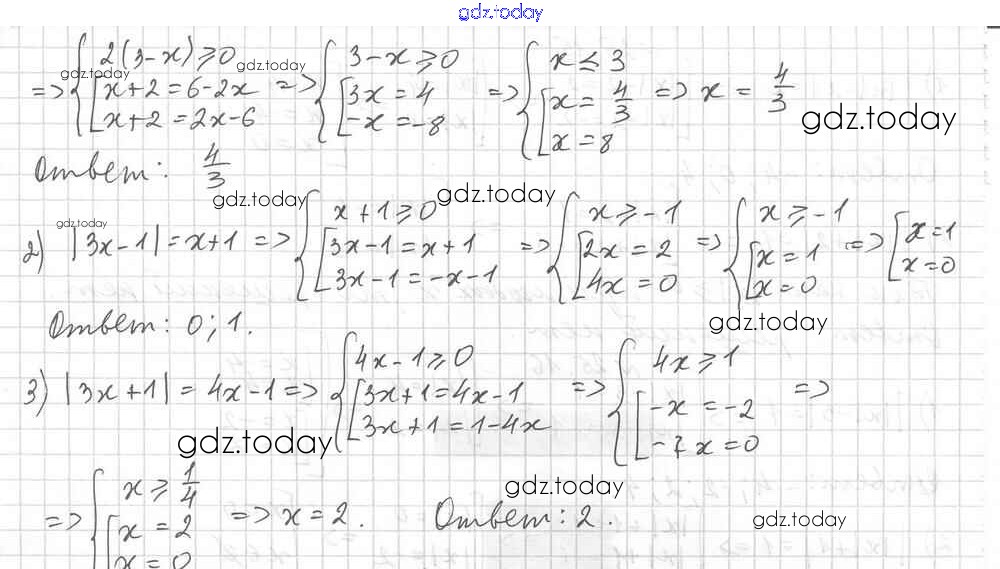 gdz.today
⇒ { 2(3-x) ≥ 0 [ x+2 = 6-2x x+2 = 2x-6 ⇒ { 3-x ≥ 0 [ 3x = 4 -x = -8 ⇒ { x ≤ 3 [ x = 4/3 x = 8 ⇒ x = 4/3
gdz.today gdz.today gdz.today
Ответ: 4/3
gdz.today gdz.today gdz.today
2) |3x-1| = x+1 ⇒ { x+1 ≥ 0 [ 3x-1 = x+1 3x-1 = -x-1 ⇒ { x ≥ -1 [ 2x = 2 4x = 0 ⇒ { x ≥ -1 [ x = 1 x = 0 ⇒ [ x = 1 x = 0
Ответ: 0; 1.
gdz.today
3) |3x+1| = 4x-1 ⇒ { 4x-1 ≥ 0 [ 3x+1 = 4x-1 3x+1 = 1-4x ⇒ { 4x ≥ 1 [ -x = -2 -7x = 0 ⇒
gdz.today
⇒ { x ≥ 1/4 [ x = 2 x = 0 ⇒ x = 2. Ответ: 2.
gdz.today gdz.today